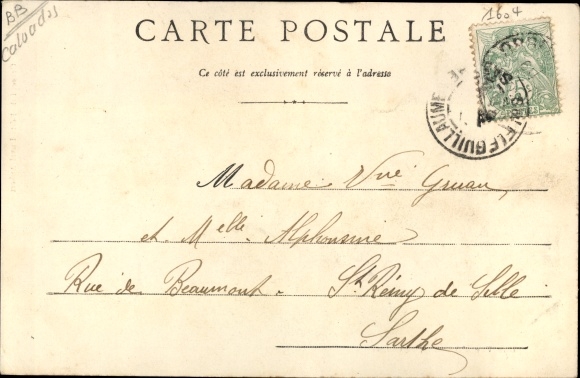 BB
Calvados
1604
CARTE POSTALE
Ce côté est exclusivement réservé à l'adresse
GUILLAUME
Madame Vve Gruau,
et Melle Alphonsine
Rue de Beaumont - St Rémy de Sille
Sarthe